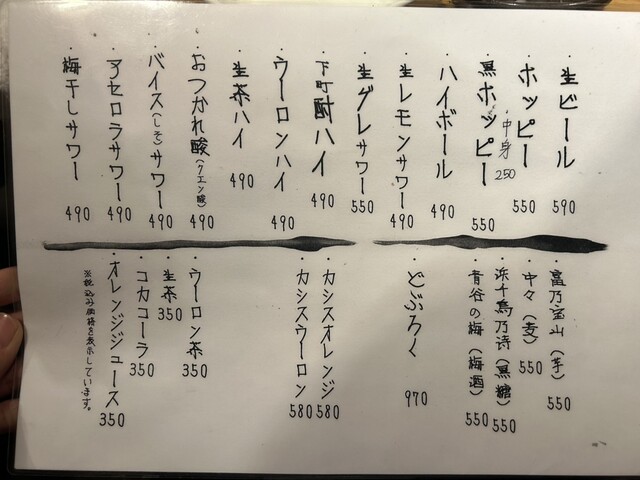 ・生ビール 590
・ホッピー 550
・中身 250
・黒ホッピー 550
・ハイボール 490
・生レモンサワー 490
・生グレサワー 550
・下町酎ハイ 490
・ウーロンハイ 490
・生茶ハイ 490
・おつかれ酸(クエン酸) 490
・バイス(しそ)サワー 490
・アセロラサワー 490
・梅干しサワー 490
・富乃宝山(芋) 550
・中々(麦) 550
・浜千鳥乃詩(黒糖) 550
・青谷の梅(梅酒) 550
・どぶろく 970
・カシスオレンジ 580
・カシスウーロン 580
・ウーロン茶 350
・生茶 350
・コカコーラ 350
・オレンジジュース 350
※税込み価格を表示しています。